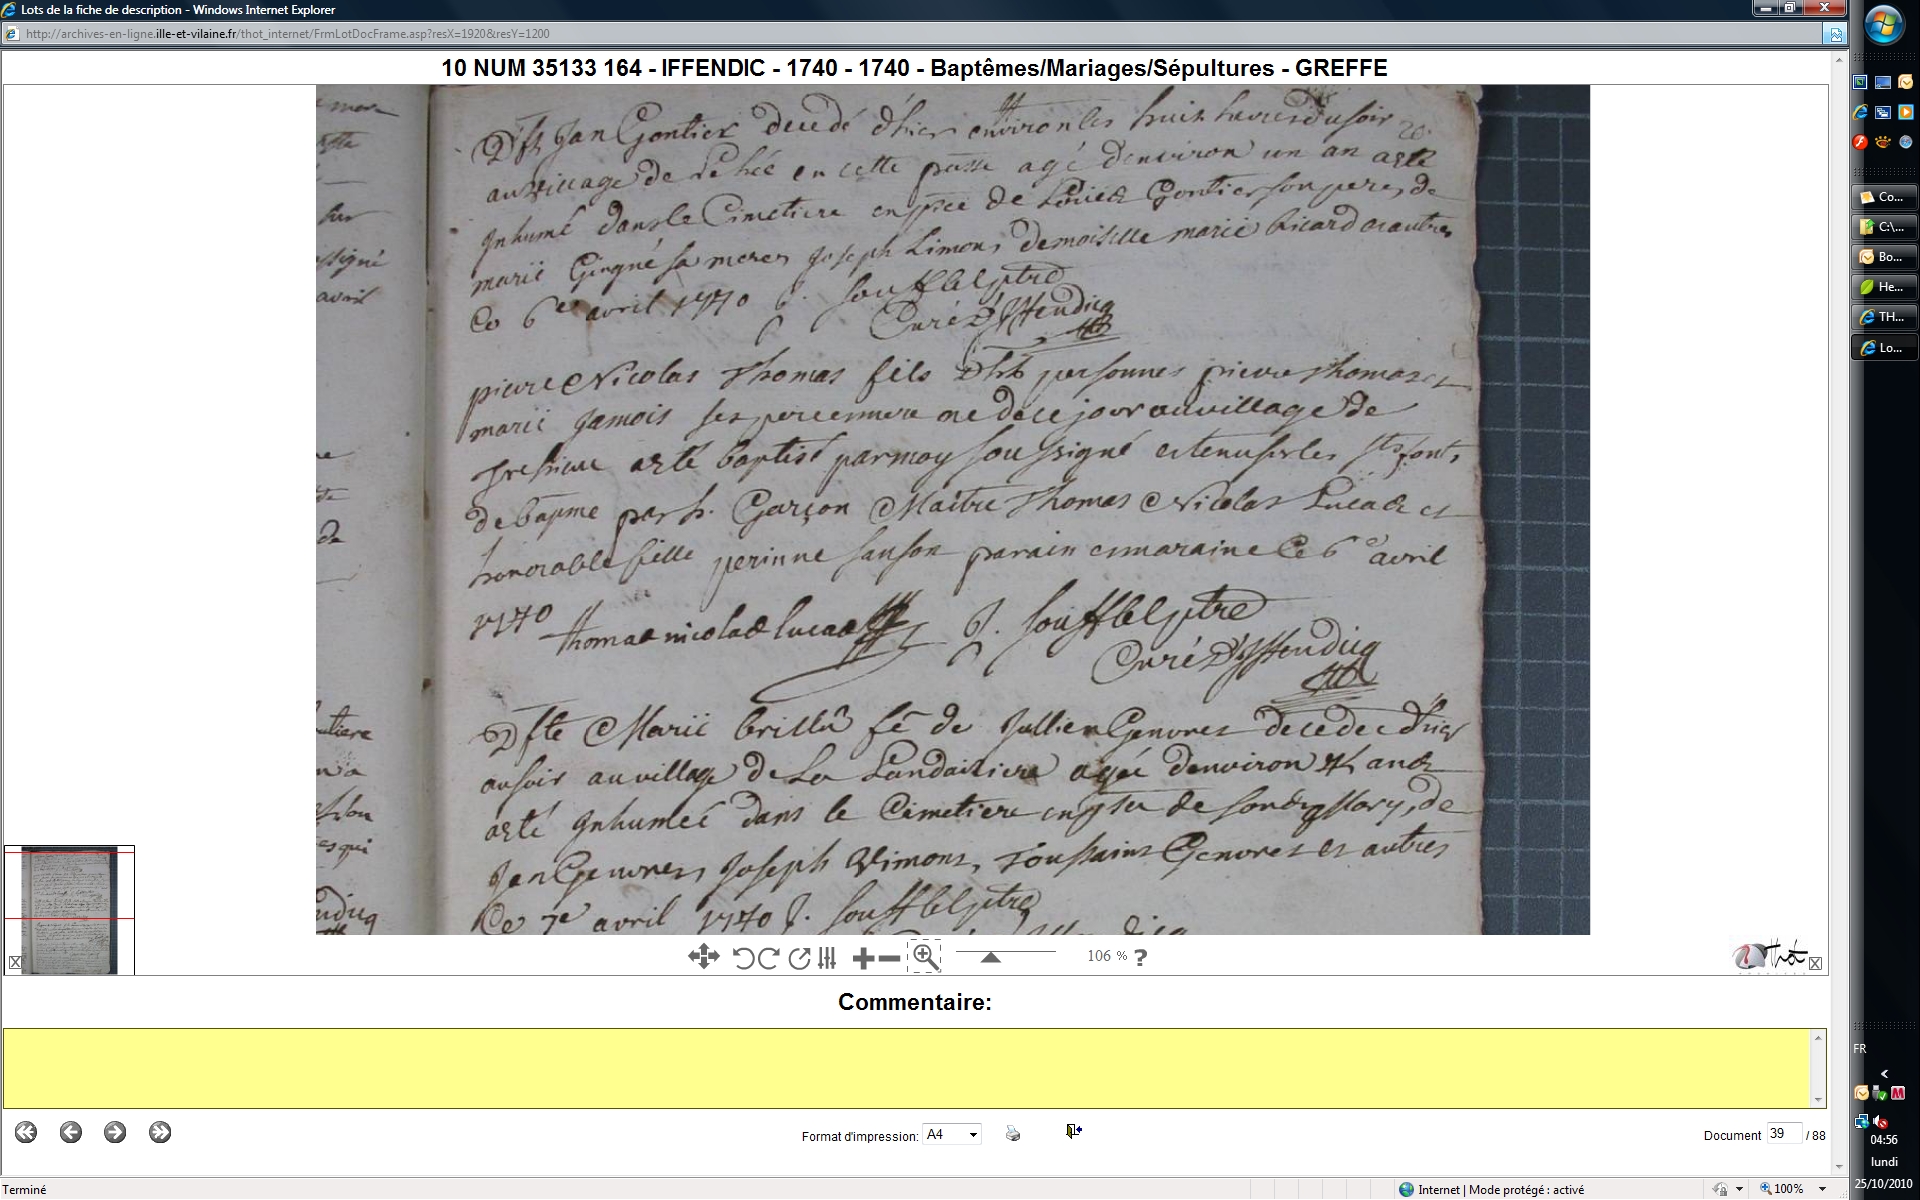 Lots de la fiche de description - Windows Internet Explorer
http://archives-en-ligne.ille-et-vilaine.fr/thot_internet/FrmLotDocFrame.asp?resX=1920&resY=1200
10 NUM 35133 164 - IFFENDIC - 1740 - 1740 - Baptêmes/Mariages/Sépultures - GREFFE
Dft Jan Gontier decedé d'hier environ les huit heures du soir
au village de en cette passe agé d'environ un an a eté
inhumé dans le Cimetiere en de Gontier son pere, de
marie sa mere, Joseph Limons, demoiselle marie bicard et autres
Ce 6e avril 1740 J. Souffblé ptre
Curé D'Iffendicq
pierre Nicolas Thomas fils personnes pierre Thomas et
marie Jamois ses pere et mere né de ce jour au village de
a eté baptisé par moy soussigné et tenu sur les sts fonts
de bapme par h. Garçon Maitre Thomas Nicolas Lucas et
honorable fille perinne sanson parain et maraine Ce 6e avril
1740 thomas nicolas lucas J. Souffblé ptre
Curé D'Iffendicq
Dfte Marie fe de Jullien Genvres decedee d'hier
au soir au village de La Landaitiere agée d'environ ans
a eté inhumée dans le Cimetiere en de de
Jan Genvres, Joseph Vimons, Toussaint Genvres et autres
Ce 7e avril 1740 J. Souffblé ptre
106 %
?
Commentaire:
Format d'impression: A4
Document 39 / 88
Terminé
Internet | Mode protégé : activé
100%
Co...
C:\...
Bo...
He...
TH...
Lo...
FR
04:56
lundi
25/10/2010